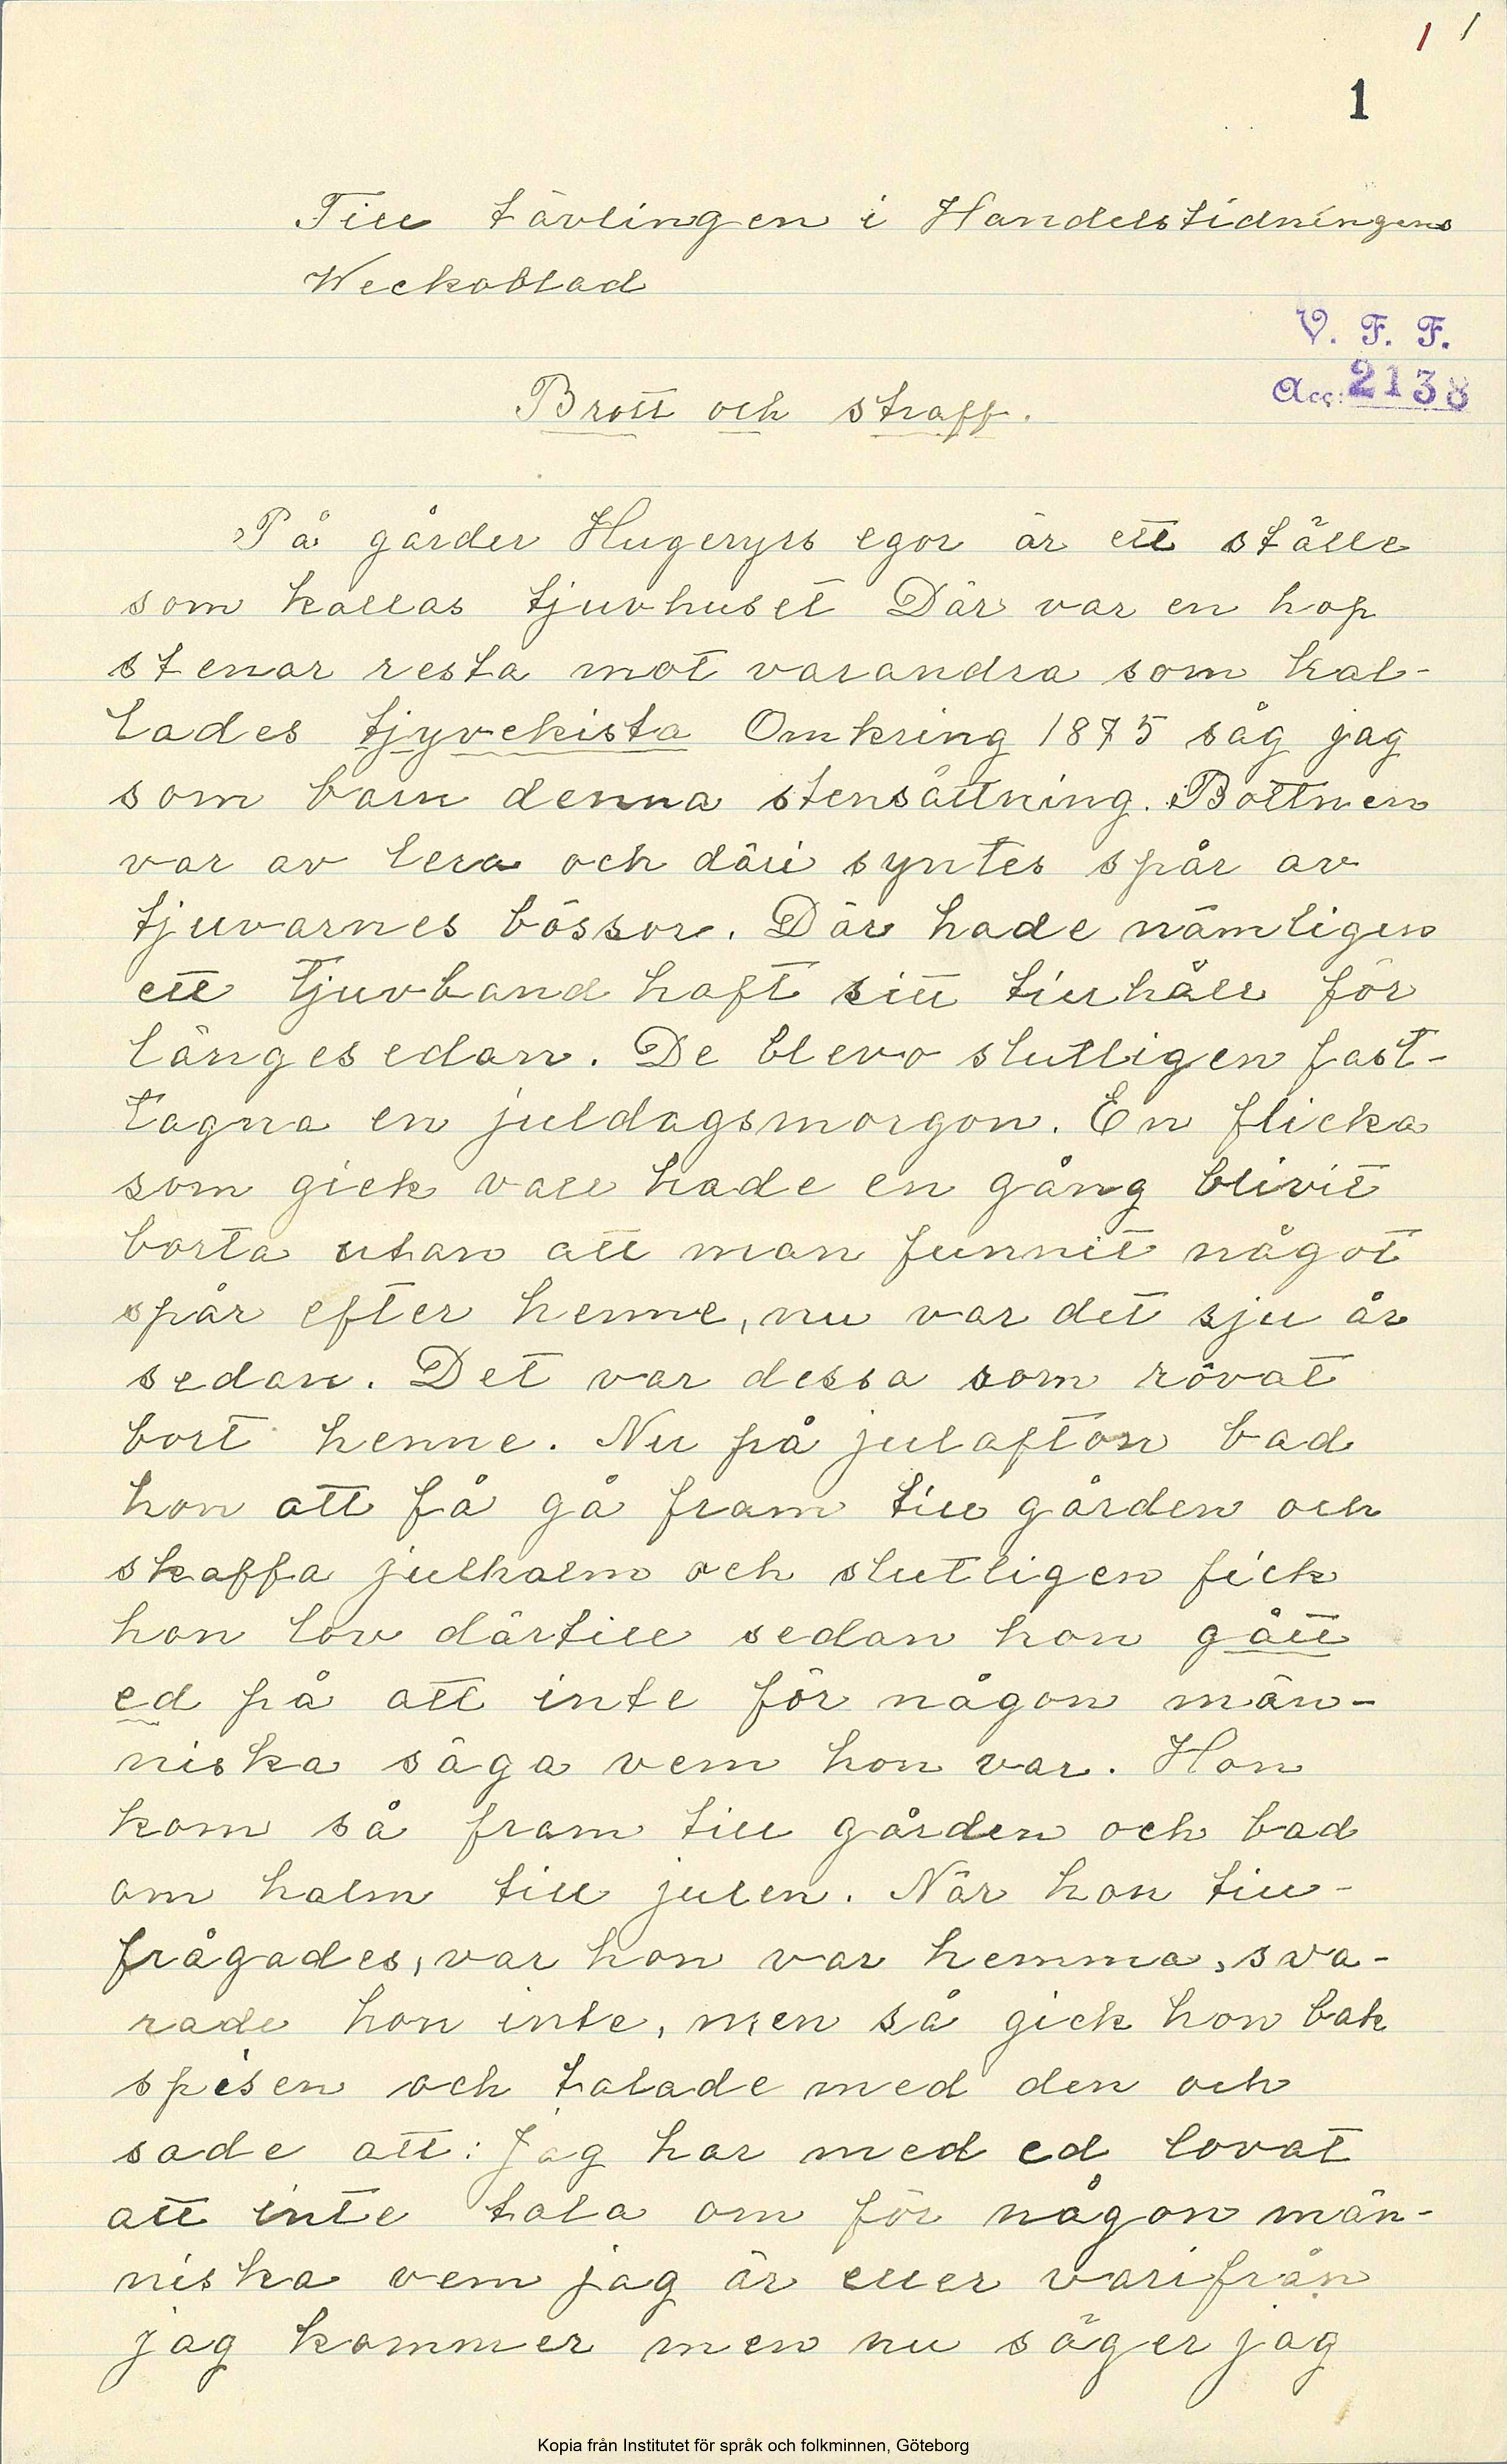 1 1
1
Till tävlingen i Handelstidningens
Weckoblad
V. F. F.
Acc. 2138
Brott och straff.
På gården Hugeryrs egor är ett ställe
som kallas tjuvhuset Där var en hop
stenar resta mot varandra som kal-
lades tjyvekista Omkring 1875 såg jag
som barn denna stensättning. Bottnen
var av lera och däri syntes spår av
tjuvarnes bössor. Där hade nämligen
ett tjuvband haft sitt tillhåll för
länge sedan. De blevo slutligen fast-
tagna en juldagsmorgon. En flicka
som gick vall hade en gång blivit
borta utan att man funnit något
spår efter henne, nu var det sju år
sedan. Det var dessa som rövat
bort henne. Nu på julafton bad
hon att få gå fram till gården och
skaffa julhalm och slutligen fick
hon lov därtill sedan hon gått
ed på att inte för någon män-
niska säga vem hon var. Hon
kom så fram till gården och bad
om halm till julen. När hon till-
frågades, var hon var hemma, sva-
rade hon inte, men så gick hon bak
spisen och talade med den och
sade att: Jag har med ed lovat
att inte tala om för någon män-
niska vem jag är eller varifrån
jag kommer men nu säger jag
Kopia från Institutet för språk och folkminnen, Göteborg